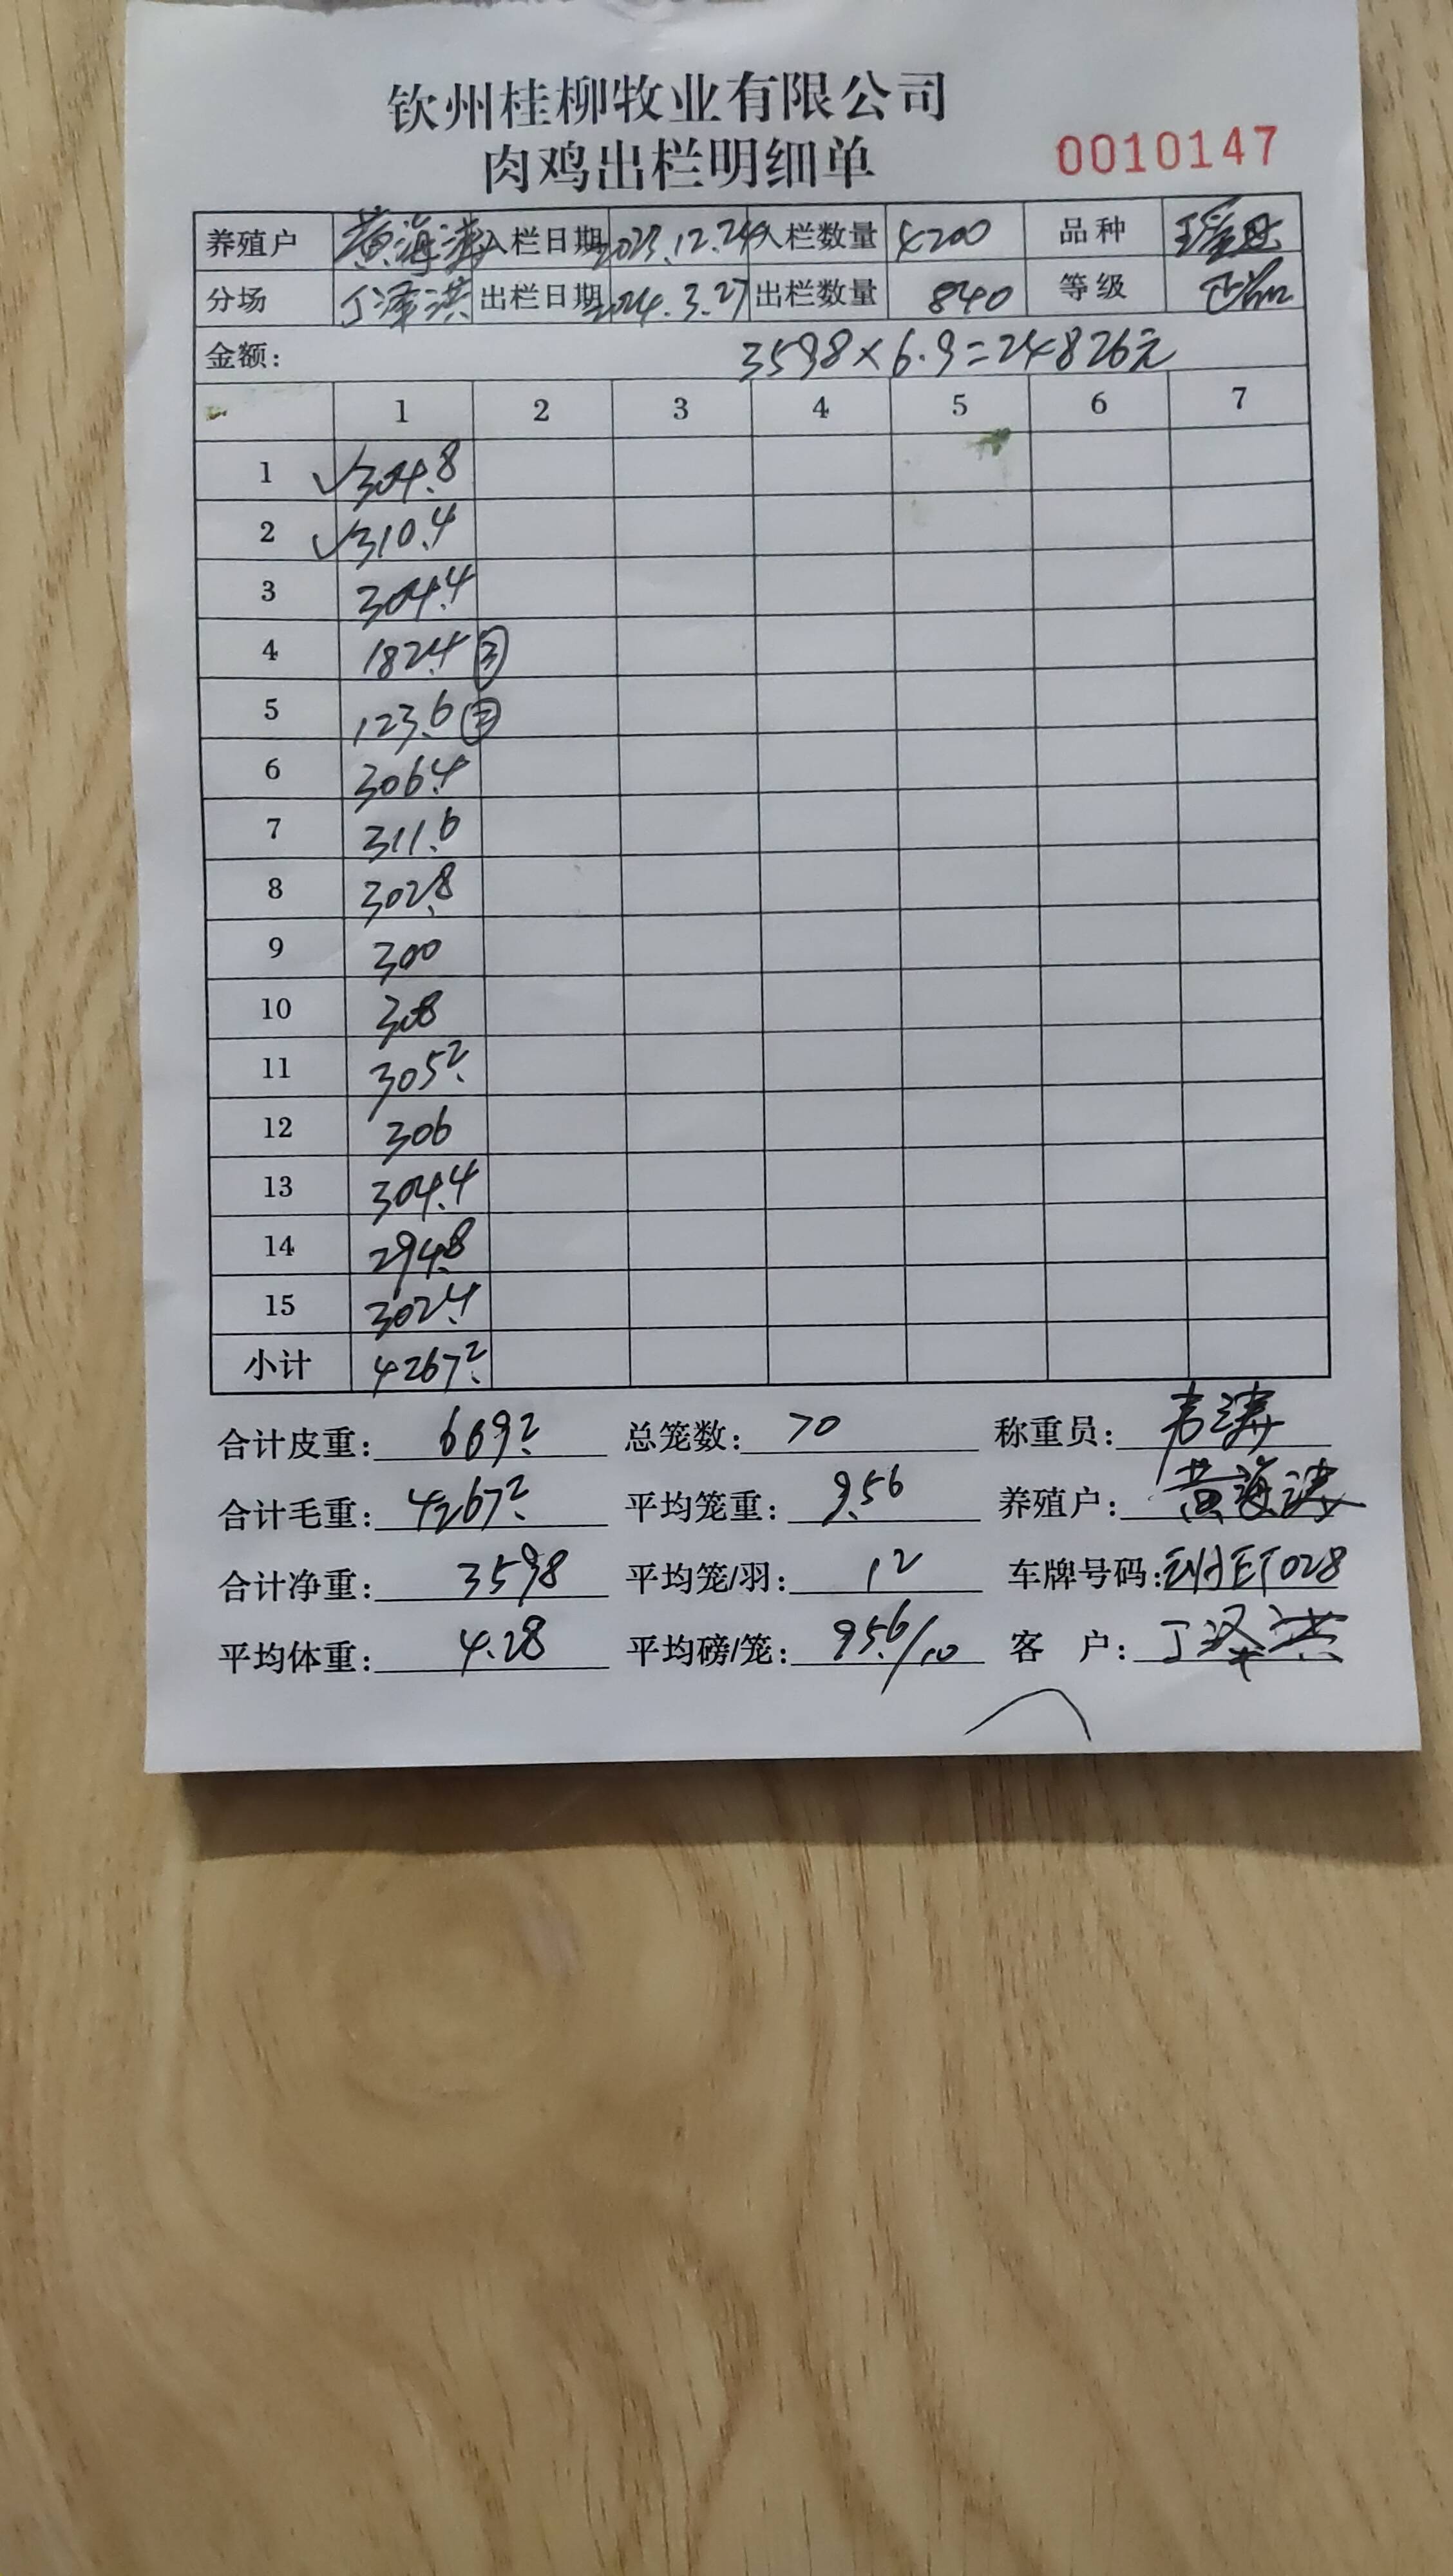 钦州桂柳牧业有限公司
肉鸡出栏明细单
0010147
养殖户 黄海涛 入栏日期 2023.12.24 入栏数量 4200 品种
分场 丁泽洪 出栏日期 2024.3.27 出栏数量 840 等级
金额: 3598×6.9=24826元
1 2 3 4 5 6 7
1 ✓304.8
2 ✓310.4
3 304.4
4 182.4 ③
5 123.6 ②
6 306.4
7 311.6
8 302.8
9 300
10 308
11 305.2
12 306
13 304.4
14 294.8
15 302.4
小计 4267.2
合计皮重: 669.2 总笼数: 70 称重员: 韦涛
合计毛重: 4267.2 平均笼重: 9.56 养殖户: 黄海涛
合计净重: 3598 平均笼/羽: 12 车牌号码:
平均体重: 4.28 平均磅/笼: 95.6/10 客 户: 丁泽洪